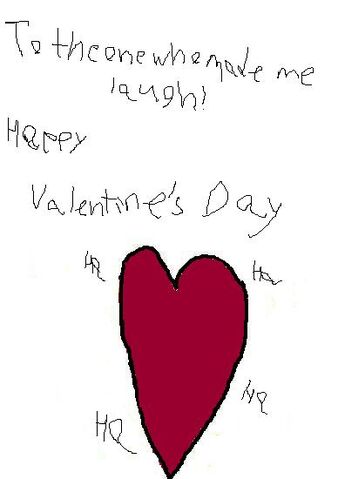 To the one who made me
laugh!
Happy
Valentine's Day
Ha
Ha
Ha
Ha